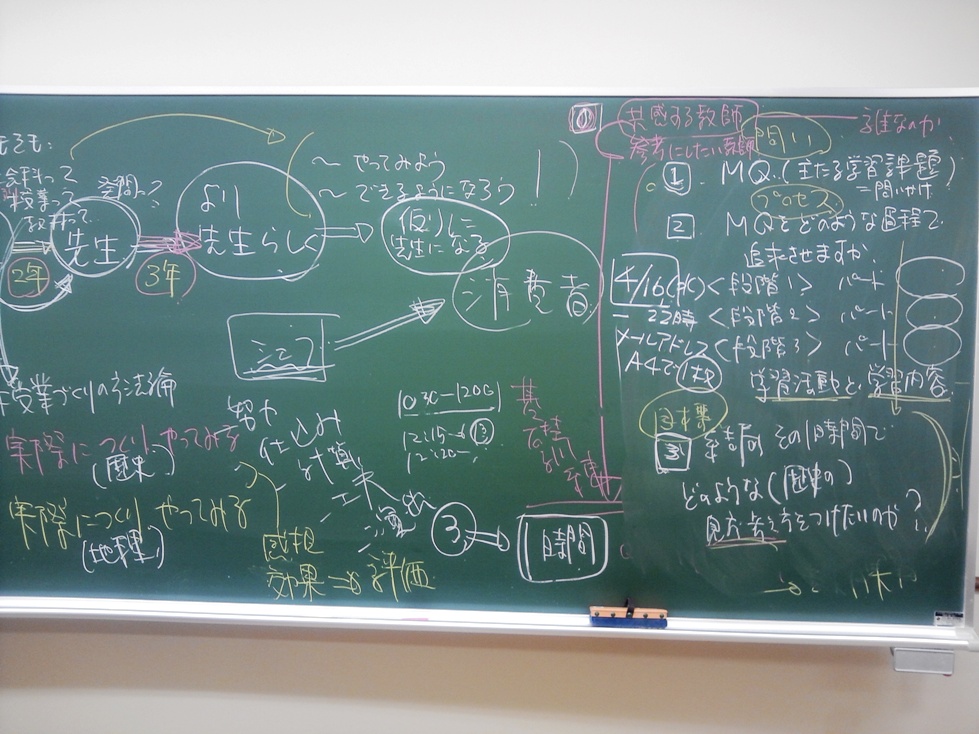 先生
2年
3年
より
先生らしく
〜 やってみよう
〜 できるようになろう
仮りに
先生になる
消費者
シェフ
授業づくりの方法論
実際につくり やってみる
(歴史)
実際につくり やってみる
(地理)
仕込み
計算
工夫
演出
感想
効果 評価
1030-1200
③
1時間
0
共感する教師
参考にしたい教師
誰なのか
問い
1 MQ (主たる学習課題)
=問いかけ
プロセス
2 MQをどのような過程で
追求させますか
4/16(水) <段階1> パート
22時 <段階2> パート
メールアドレス <段階3> パート
A4で1枚
学習活動と学習内容
目標
3 結局 その1時間で
どのような(歴史の)
見方考え方をつけたいのか?